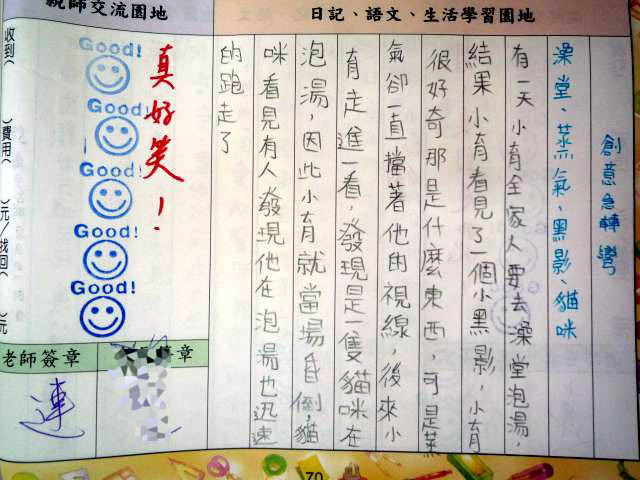 日記、語文、生活學習園地
創意急轉彎
澡堂、蒸氣、黑影、貓咪
有一天小育全家人要去澡堂泡湯,
結果小育看見了一個小黑影,小育
很好奇那是什麼東西,可是蒸
氣卻一直擋著他的視線,後來小
育走進一看,發現是一隻貓咪在
泡湯,因此小育就當場昏倒,貓
咪看見有人發現他在泡湯也迅速
的跑走了
親師交流園地
真好笑!
Good!
Good!
Good!
Good!
Good!
收到( )費用( )元/找回( )元
老師簽章
簽章
連
70